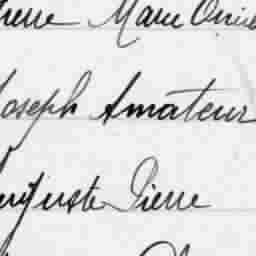 Pierre Marie Onis
Joseph Amateur
Auguste Pierre